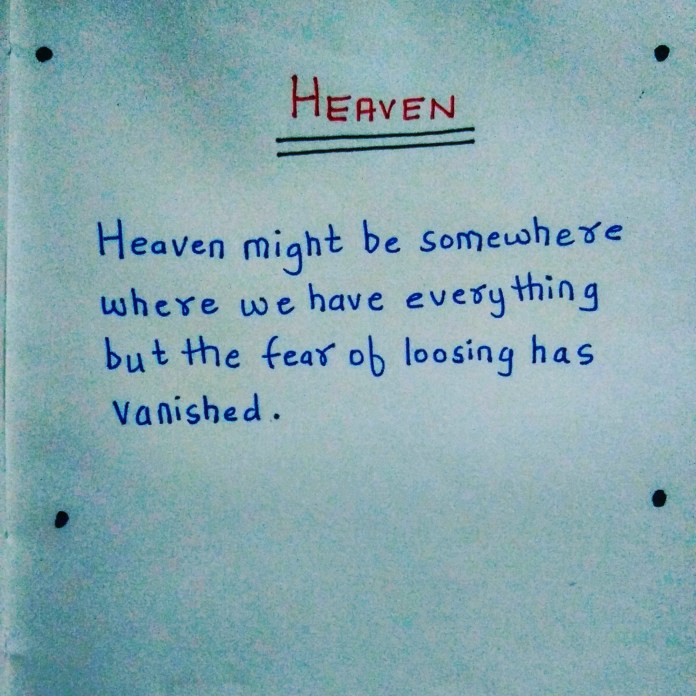 HEAVEN
Heaven might be somewhere
where we have everything
but the fear of loosing has
vanished.